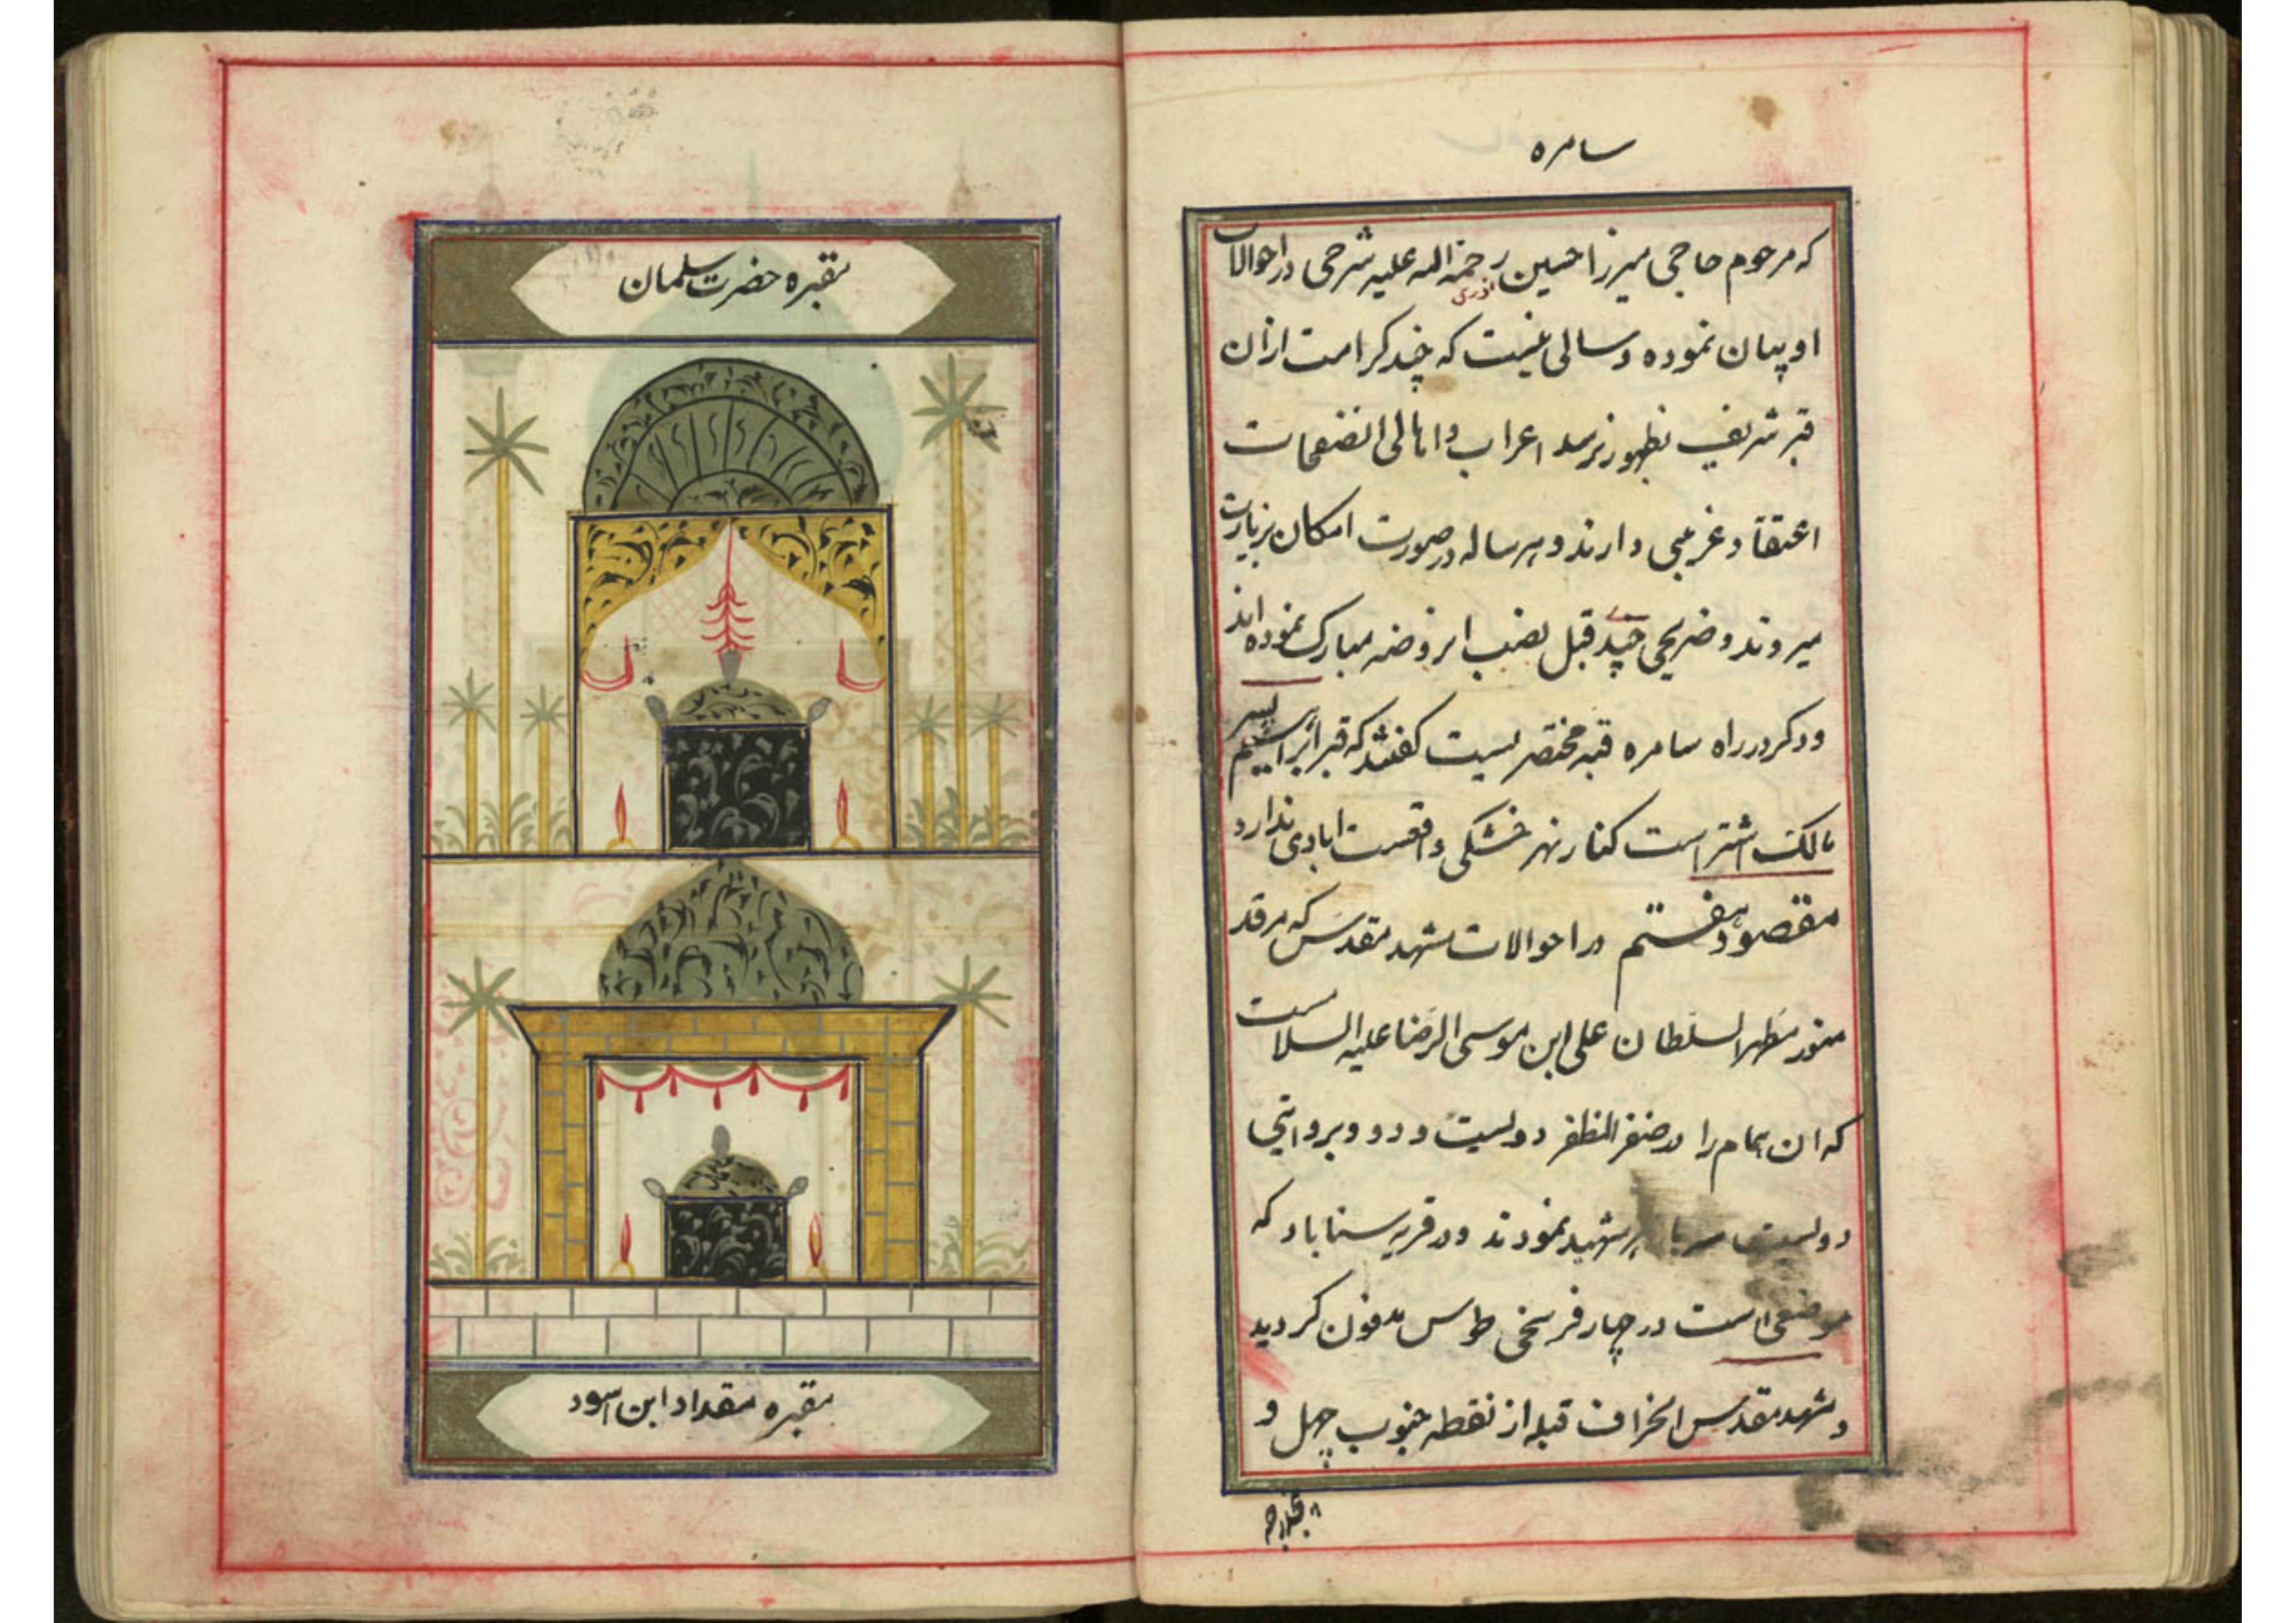 سامره
که مرحوم حاجی میرزا حسین رحمة الله علیه شرحی در احوالات
نوری
او بیان نموده و سالی نیست که چند کرامت ازان
قبر شریف بظهور نرسد اعراب و اهالی انصفحات
اعتقاد غریبی دارند و هر ساله در صورت امکان بزیارت
میروند و ضریحی چندی قبل نصب انروضه مبارک نموده‌اند
ودکر در راه سامره قبه مختصریست گفتند که قبر ابراهیم پسر
مالک اشتر است کنار نهر خشکی واقعست ابادی ندارد
مقصود هفتم در احوالات مشهد مقدس که مرقد
منور مطهر السلطان علی ابن موسی الرضا علیه السلام است
که ان همام را در صفر المظفر دویست و دو و بروایتی
دویست سه با شهید نمودند ودر قریه سناباد که
موضعی است در چهار فرسخی طوس مدفون کردید
و مشهد مقدس انحراف قبله از نقطه جنوب چهل و
مقبره حضرت سلمان
مقبره مقداد ابن اسود